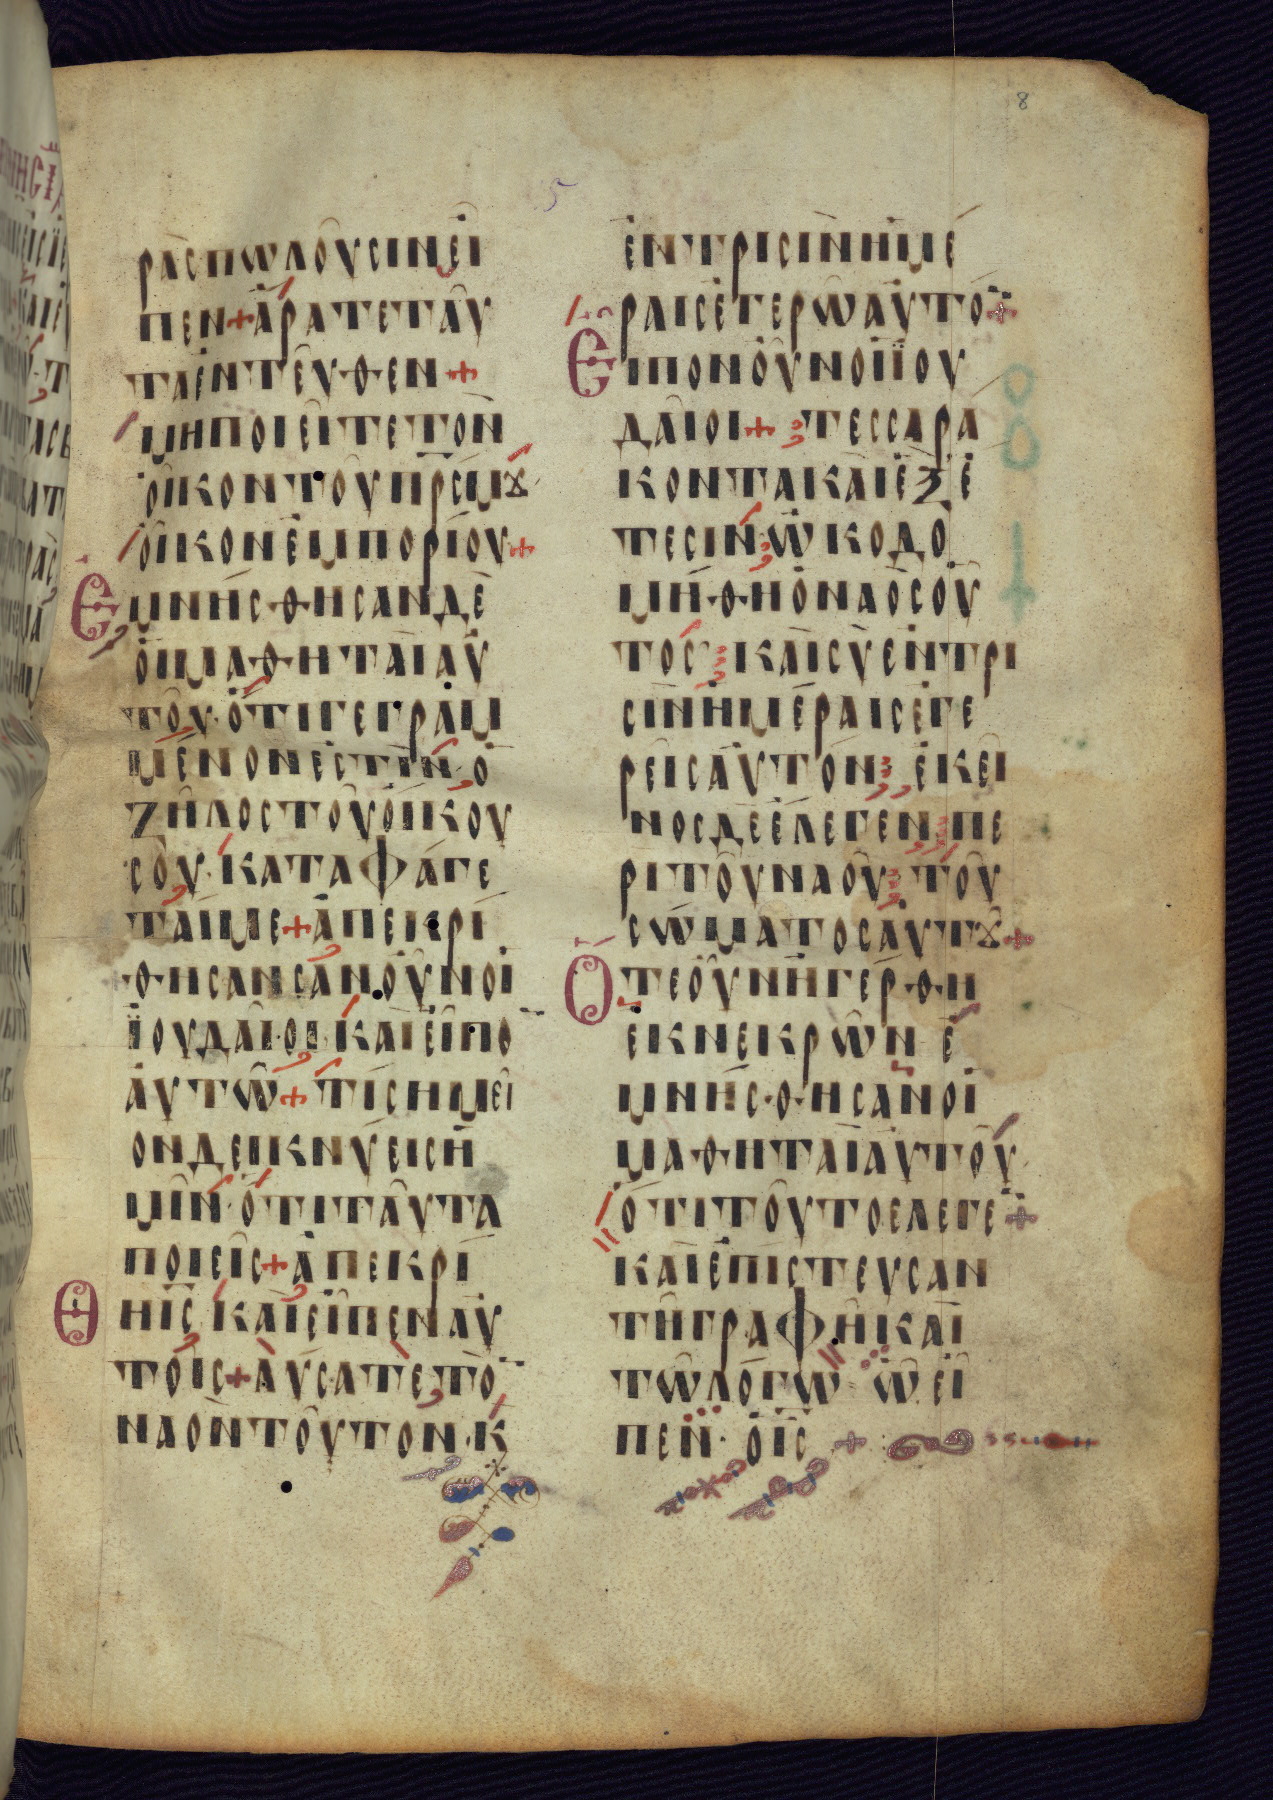 8
5
ρὰς πωλοῦσιν εἶ
πεν + ἄρατε ταῦ
τα ἐντεῦθεν +
μὴ ποιεῖτε τὸν
οἶκον τοῦ πρ̅ς μȣ
οἶκον ἐμπορίου +
Ἐμνήσθησαν δὲ
οἱ μαθηταὶ αὐ
τοῦ· ὅτι γεγραμ
μένον ἐστὶν· ὁ
ζῆλος τοῦ οἴκου
σοῦ· καταφάγε
ταί με + ἀπεκρί
θησαν σὰν οὖν οἱ
ἰουδαῖοι· καὶ εἶπο̅
αὐτῶ + τί σημεῖ
ον δεικνύεις ἡ
μῖν· ὅτι ταῦτα
ποιεῖς + ἀπεκρί
Θη ι̅ς· καὶ εἶπεν αὐ
τοῖς + λύσατε τὸ̅
ναὸν τοῦτον· κ
ἐν τρισὶν ἡμέ
ραις ἐγερῶ αὐτό̅ +
Εἶπον οὖν οἱ ἰου
δαῖοι + τεσσαρά
κοντα καὶ ἓξ ἔ
τεσιν· ὠκοδο
μήθη ὁ ναὸς οὗ
τος· καὶ σὺ ἐν τρι
σὶν ἡμέραις ἐγε
ρεῖς αὐτόν· ἐκεῖ
νος δὲ ἔλεγεν· πε
ρὶ τοῦ ναοῦ· τοῦ
σώματος αὐτȣ +
Ὅτε οὖν ἠγέρθη
ἐκ νεκρῶν· ἐ
μνήσθησαν οἱ
μαθηταὶ αὐτοῦ·
ὅτι τοῦτο ἔλεγε̅ +
καὶ ἐπίστευσαν
τῆ γραφῆ· καὶ
τῶ λόγω· ὧ εἶ
πεν· ὁ ι̅ς +